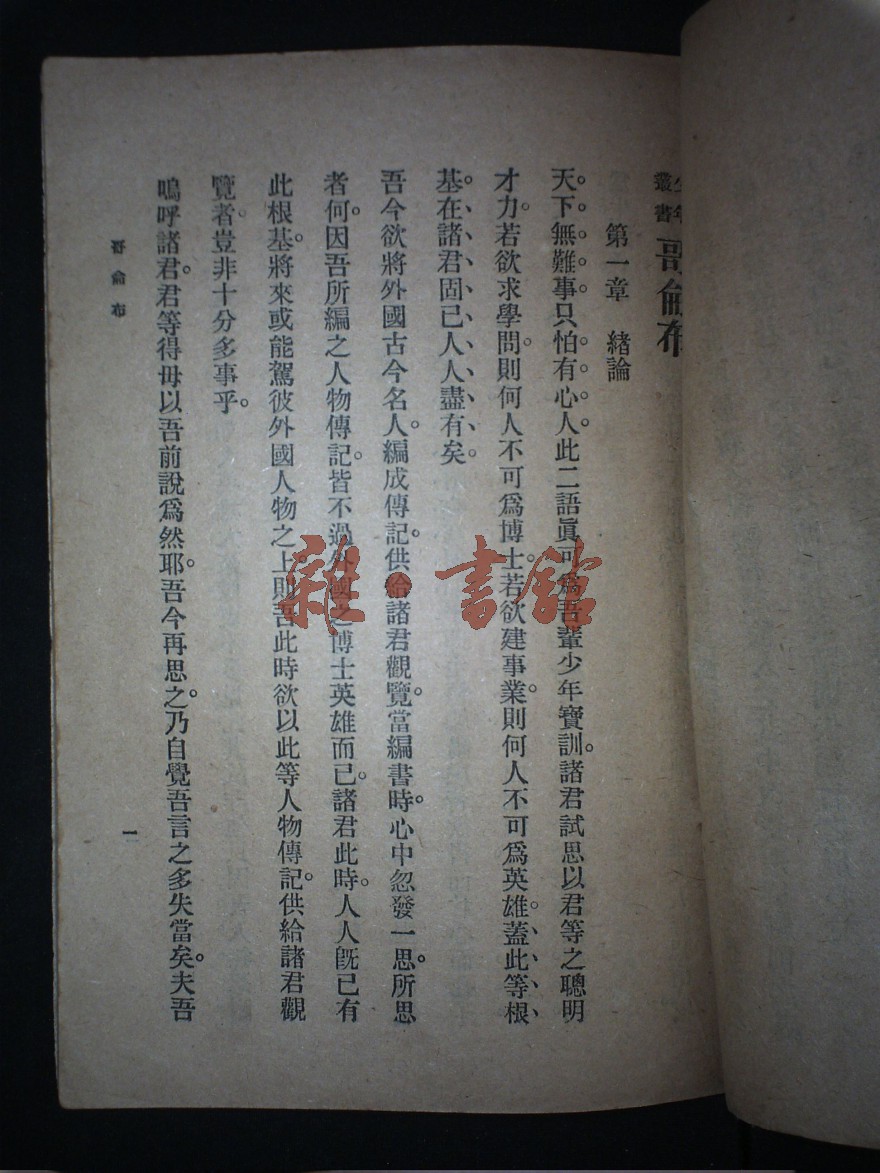 少年叢書 哥侖布
第一章 緒論
天下無難事。只怕有心人。此二語眞可爲吾輩少年寶訓。諸君試思以君等之聰明
才力。若欲求學問。則何人不可爲博士。若欲建事業。則何人不可爲英雄。蓋此等根
基。在諸君固已人人盡有矣。
吾今欲將外國古今名人。編成傳記。供給諸君觀覽。當編書時。心中忽發一思。所思
者何。因吾所編之人物傳記。皆不過外國之博士英雄而已。諸君此時。人人旣已有
此根基。將來或能駕彼外國人物之上。則吾此時欲以此等人物傳記。供給諸君觀
覽者。豈非十分多事乎。
嗚呼諸君。君等得毋以吾前說爲然耶。吾今再思之。乃自覺吾言之多失當矣。夫吾
哥侖布
一
雜·書館